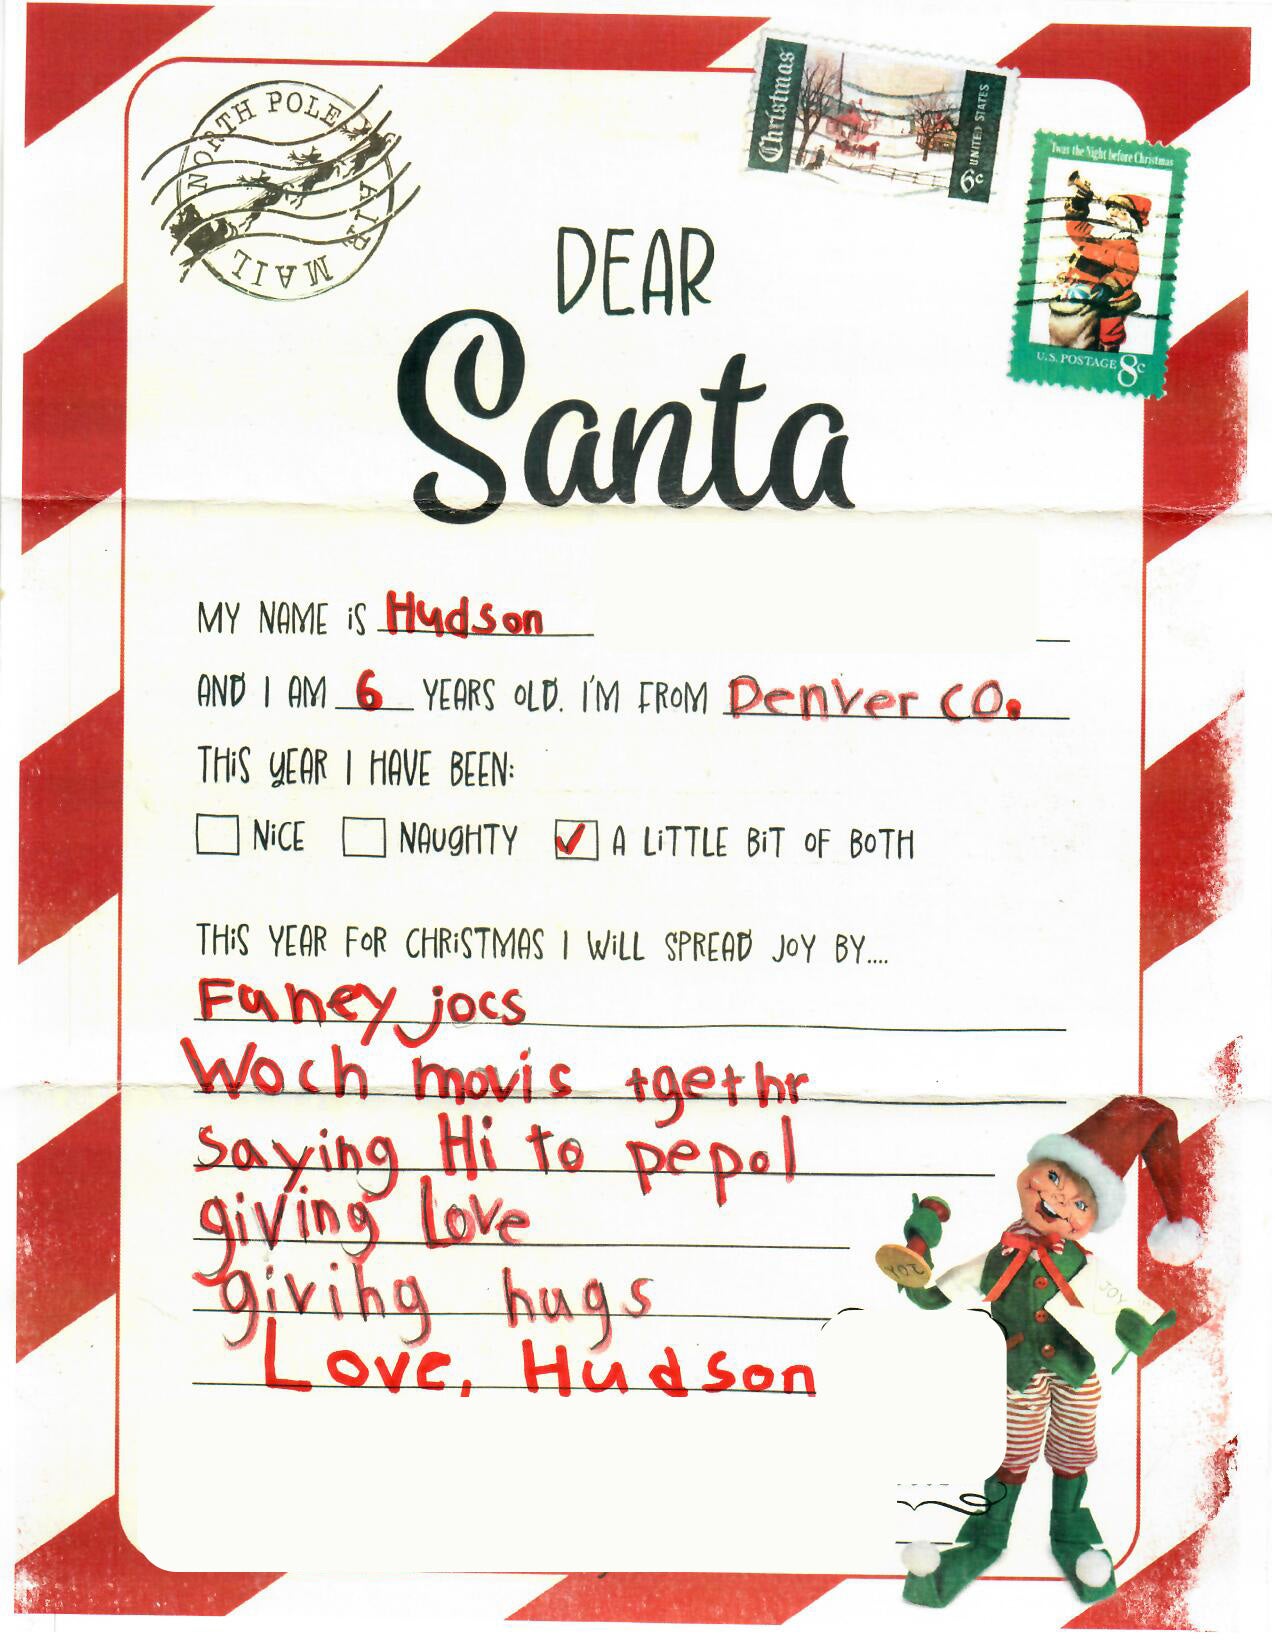 NORTH POLE
AIR MAIL
Christmas
UNITED STATES
6c
'Twas the Night before Christmas
U.S. POSTAGE 8c
DEAR
Santa
MY NAME iS Hudson
AND I AM 6 YEARS OLD. I'M FROM Denver CO.
THiS YEAR I HAVE BEEN:
NiCE NAUGHTY ✓ A LiTTLE BiT OF BOTH
THiS YEAR FOR CHRiSTMAS I WiLL SPREAD JOY BY....
Funey jocs
Woch movis tgethr
saying Hi to pepol
giving Love
giving hugs
Love, Hudson
JOY
JOY